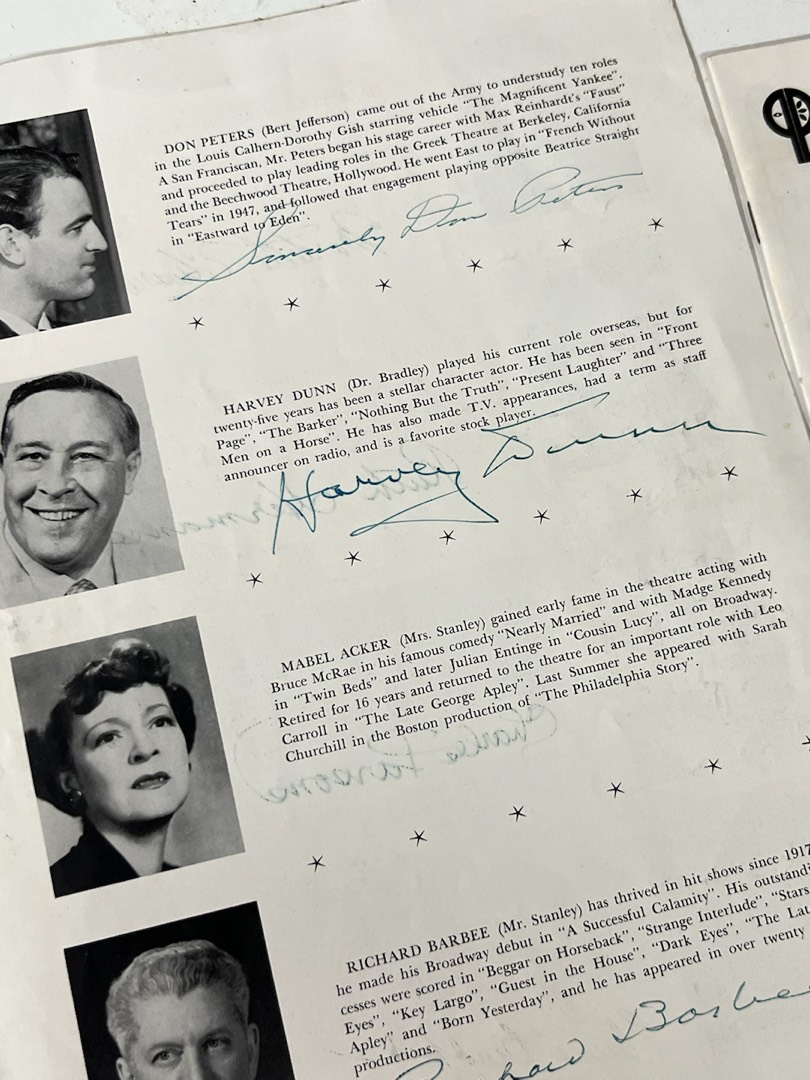 DON PETERS (Bert Jefferson) came out of the Army to understudy ten roles
in the Louis Calhern-Dorothy Gish starring vehicle "The Magnificent Yankee".
A San Franciscan, Mr. Peters began his stage career with Max Reinhardt's "Faust"
and proceeded to play leading roles in the Greek Theatre at Berkeley, California
and the Beechwood Theatre, Hollywood. He went East to play in "French Without
Tears" in 1947, and followed that engagement playing opposite Beatrice Straight
in "Eastward to Eden".
Sincerely Don Peters
HARVEY DUNN (Dr. Bradley) played his current role overseas, but for
twenty-five years has been a stellar character actor. He has been seen in "Front
Page", "The Barker", "Nothing But the Truth", "Present Laughter" and "Three
Men on a Horse". He has also made T.V. appearances, had a term as staff
announcer on radio, and is a favorite stock player.
Harvey Dunn
MABEL ACKER (Mrs. Stanley) gained early fame in the theatre acting with
Bruce McRae in his famous comedy "Nearly Married" and with Madge Kennedy
in "Twin Beds" and later Julian Entinge in "Cousin Lucy", all on Broadway.
Retired for 16 years and returned to the theatre for an important role with Leo
Carroll in "The Late George Apley". Last Summer she appeared with Sarah
Churchill in the Boston production of "The Philadelphia Story".
RICHARD BARBEE (Mr. Stanley) has thrived in hit shows since 1917
he made his Broadway debut in "A Successful Calamity". His outstandi
cesses were scored in "Beggar on Horseback", "Strange Interlude", "Stars
Eyes", "Key Largo", "Guest in the House", "Dark Eyes", "The Lat
Apley" and "Born Yesterday", and he has appeared in over twenty
productions.
Richard Barbee